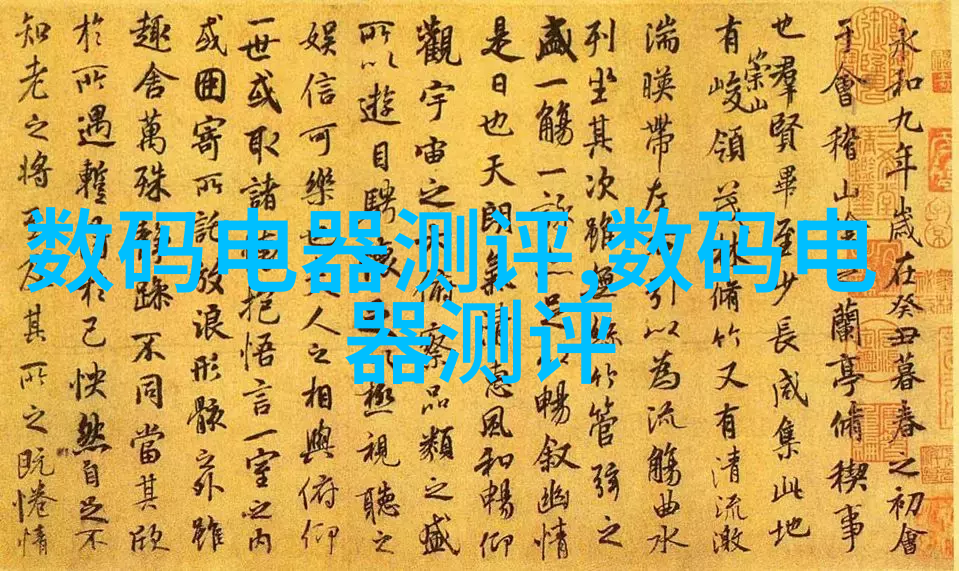 永和九年歲在癸丑暮春之初會
于會稽山之蘭亭脩稧事
也羣賢畢至少長咸集此地
有崇山峻領茂林脩竹又有清流激
湍暎帶左引以為流觴曲水
列坐其次雖無絲竹管弦之
盛一觴一詠足以暢叙幽情
是日也天朗氣清惠風和暢仰
觀宇宙之大俯察品類之盛
所以遊目騁極視聽之
娛信可樂也人之相與俯仰
一世或取諸抱悟言一室之內
或因寄所託放浪形骸之外雖
趣舍萬殊躁不同當其欣
於所遇蹔於己怏然自足不
知老之將及其所之既惓情
数码电器测评,数码电
器测评